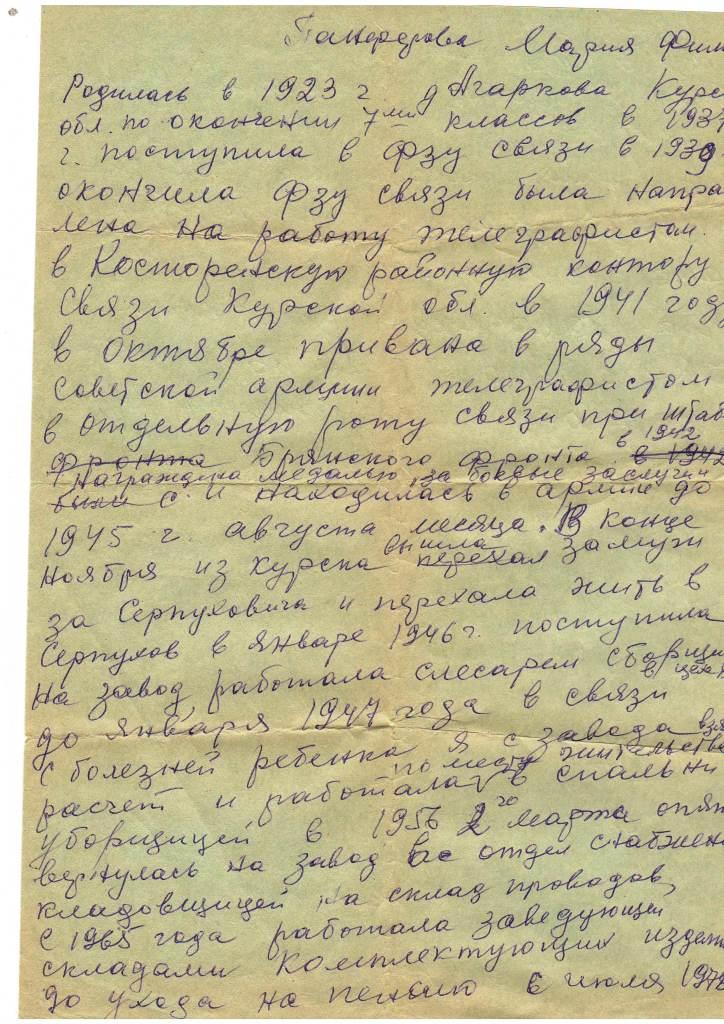 Панферова Мария Фил
Родилась в 1923 г д Агаркова Курс
обл. по окончении 7ми классов в 193
г. поступила в ФЗУ связи в 1939
окончила ФЗУ связи была напра
лена на работу телеграфистом.
в Касторенскую районную контору
Связи Курской обл. в 1941 год
в Октябре призвана в ряды
Советской армии телеграфистом
в отдельную роту связи при штаб
фронта Брянского фронта в 1942 в 1942
Награждена медалью за боевые заслуги
были с. и находилась в армии до
1945 г августа месяца. В конце
Ноября из Курска вышла перехал замуж
за Серпуховича и перехала жить в
Серпухов в январе 1946 г. поступила
на завод, работала слесарем сборщи
в цех
до января 1947 года в связи
с болезней ребенка я с завода взя
расчет и работала по месту жительства в спальни
уборщицей в 1956 20 марта опя
вернулась на завод в отдел снабжен
кладовщицей на склад проводов,
с 1965 года работала заведующей
складами комплектующих издел
до ухода на пенсию в июля 197